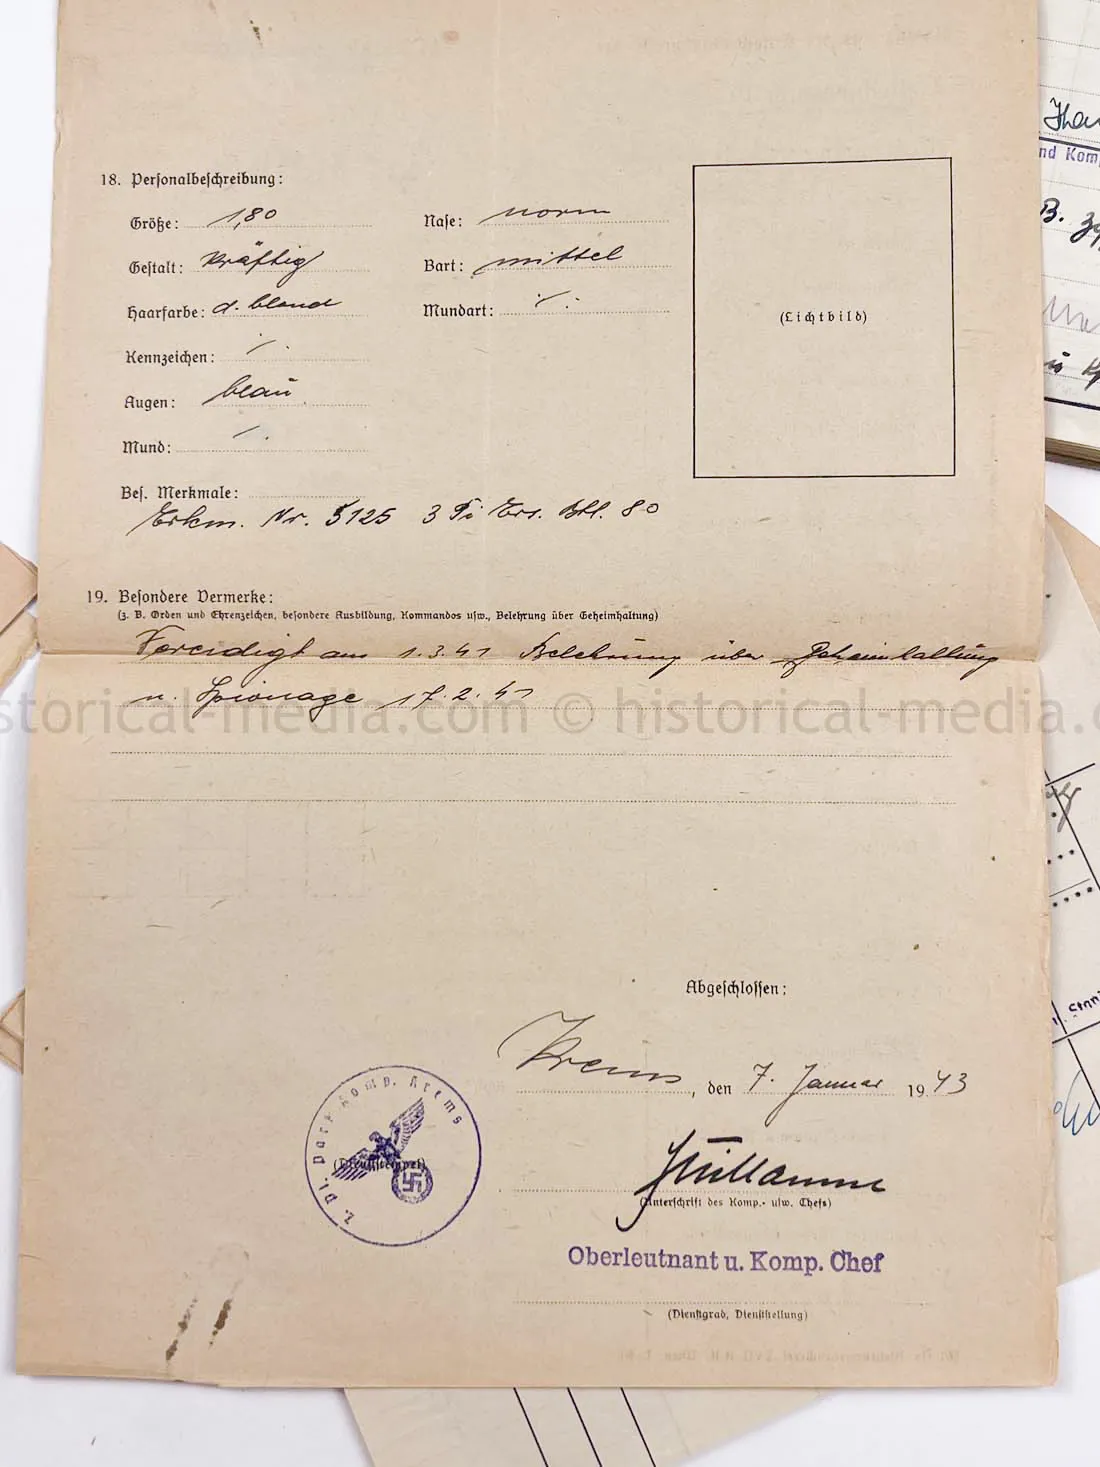 18. Personalbeschreibung:
Größe: 1,80 Nase: norm
Gestalt: kräftig Bart: mittel
Haarfarbe: d. blond Mundart: ./.
Kennzeichen: ./.
Augen: blau
Mund: ./.
(Lichtbild)
Bes. Merkmale:
Erkm. Nr. 5125 3 Pi Ers. Btl. 80
19. Besondere Vermerke:
(z. B. Orden und Ehrenzeichen, besondere Ausbildung, Kommandos usw., Belehrung über Geheimhaltung)
Vereidigt am 1.3.41 Belehrung über Geheimhaltung
u. Spionage 17.2.41
historical-media.com © historical-media.c
Abgeschlossen:
Krems, den 7. Januar 1943
Park Komp. Krems
(Dienststempel)
(Unterschrift des Komp.- usw. Chefs)
Oberleutnant u. Komp. Chef
(Dienstgrad, Dienststellung)
nd Komp
B.